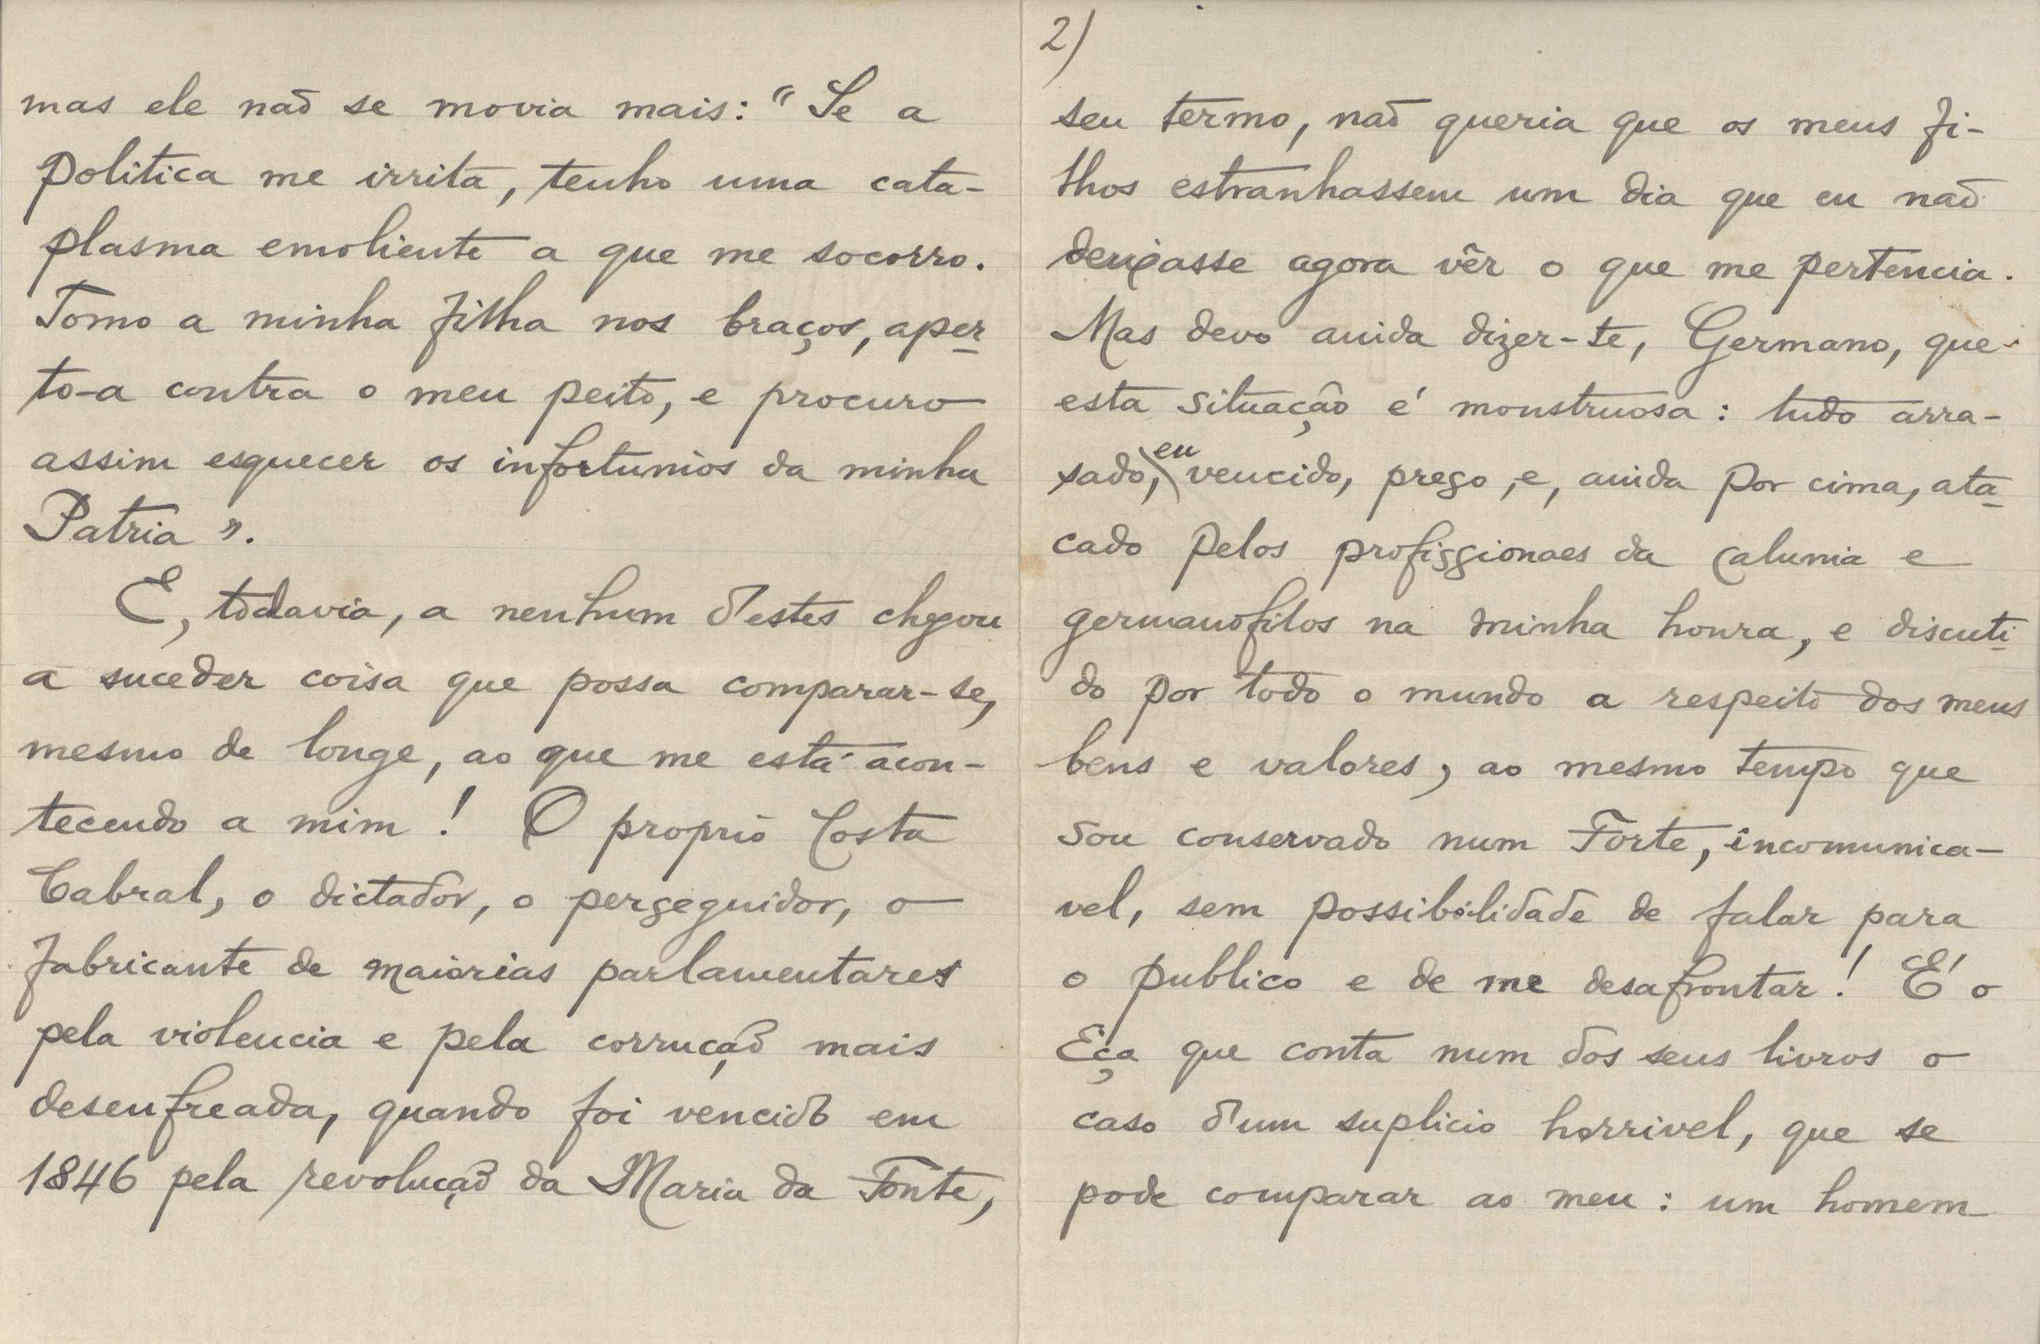 mas ele não se movia mais: "Se a
politica me irrita, tenho uma cata-
plasma emoliente a que me socorro.
Tomo a minha filha nos braços, aper
to-a contra o meu peito, e procuro
assim esquecer os infortunios da minha
Patria".
E, todavia, a nenhum d'estes chegou
a suceder coisa que possa comparar-se,
mesmo de longe, ao que me está acon-
tecendo a mim! O proprio Costa
Cabral, o dictador, o perseguidor, o
fabricante de maiorias parlamentares
pela violencia e pela corrução mais
desenfreada, quando foi vencido em
1846 pela revolução da Maria da Fonte,
2)
seu termo, não queria que os meus fi-
lhos estranhassem um dia que eu não
deixasse agora vêr o que me pertencia.
Mas devo ainda dizer-te, Germano, que
esta situação é monstruosa: tudo arra-
sado, eu vencido, preso, e, ainda por cima, ata
cado pelos profissionaes da calunia e
germanofilos na minha honra, e discuti
do por todo o mundo a respeito dos meus
bens e valores, ao mesmo tempo que
sou conservado num Forte, incomunica-
vel, sem possibilidade de falar para
o publico e de me desafrontar! É o
Eça que conta num dos seus livros o
caso d'um suplicio horrivel, que se
pode comparar ao meu: um homem